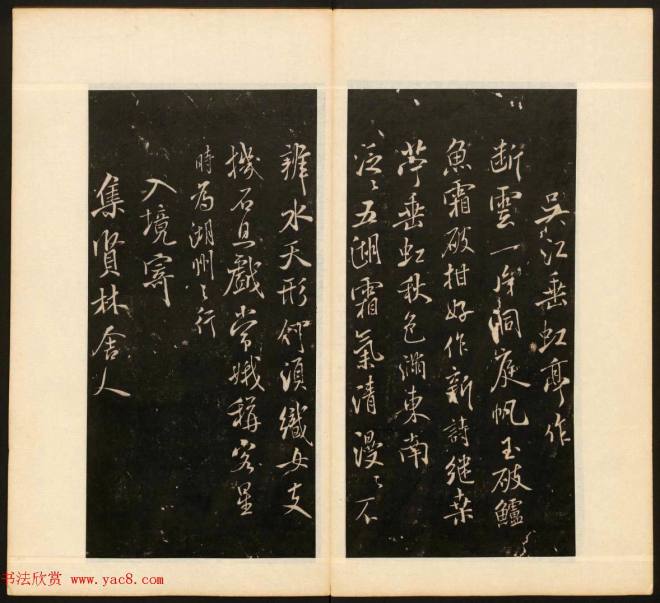 吳江垂虹亭作
断雲一片洞庭帆玉破鱸
魚霜破柑好作新詩継桑
苧垂虹秋色滿東南
泛〻五湖霜氣清漫〻不
辨水天形何須織女支
機石且戲常娥稱客星
時為湖州之行
入境寄
集賢林舍人
书法欣赏 www.yac8.com